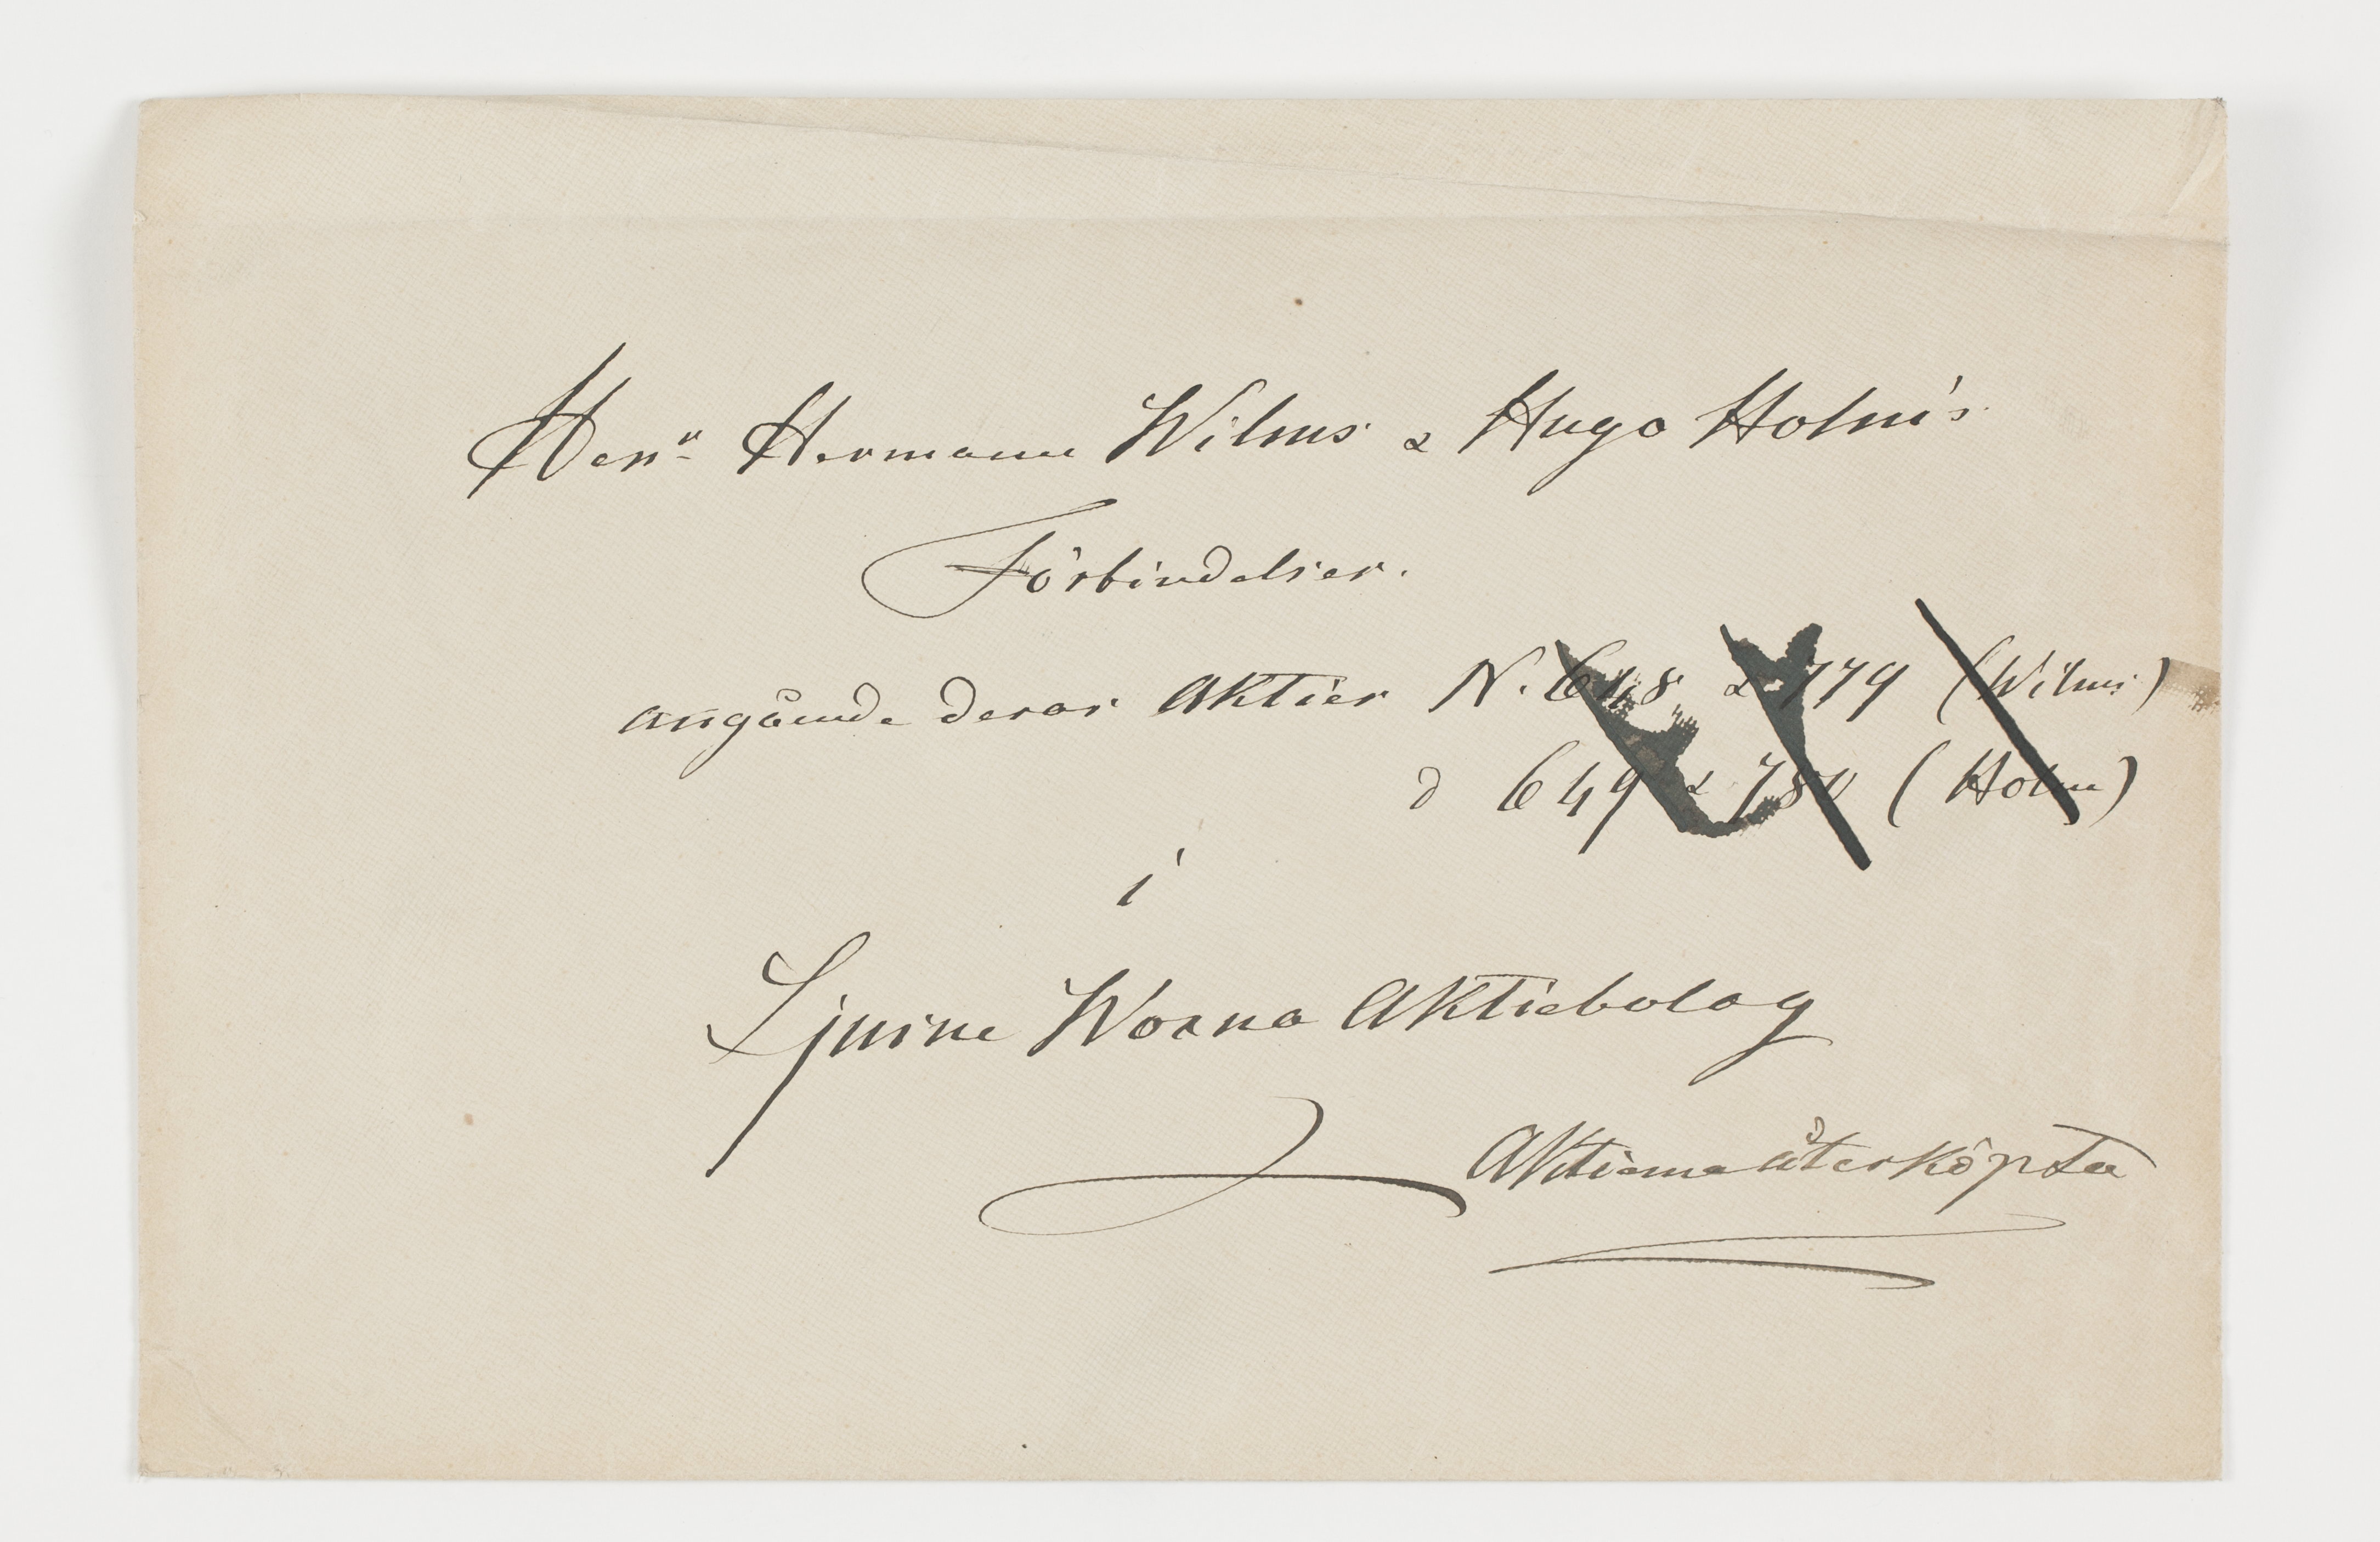 Herrr Hermann Wilms & Hugo Holm's
Förbindelser.
angående deras Aktier N. 648 & 779 (Wilms)
d 649 & 780 (Holm)
i
Ljusne Woxna Aktiebolag
Aktierna återköpta